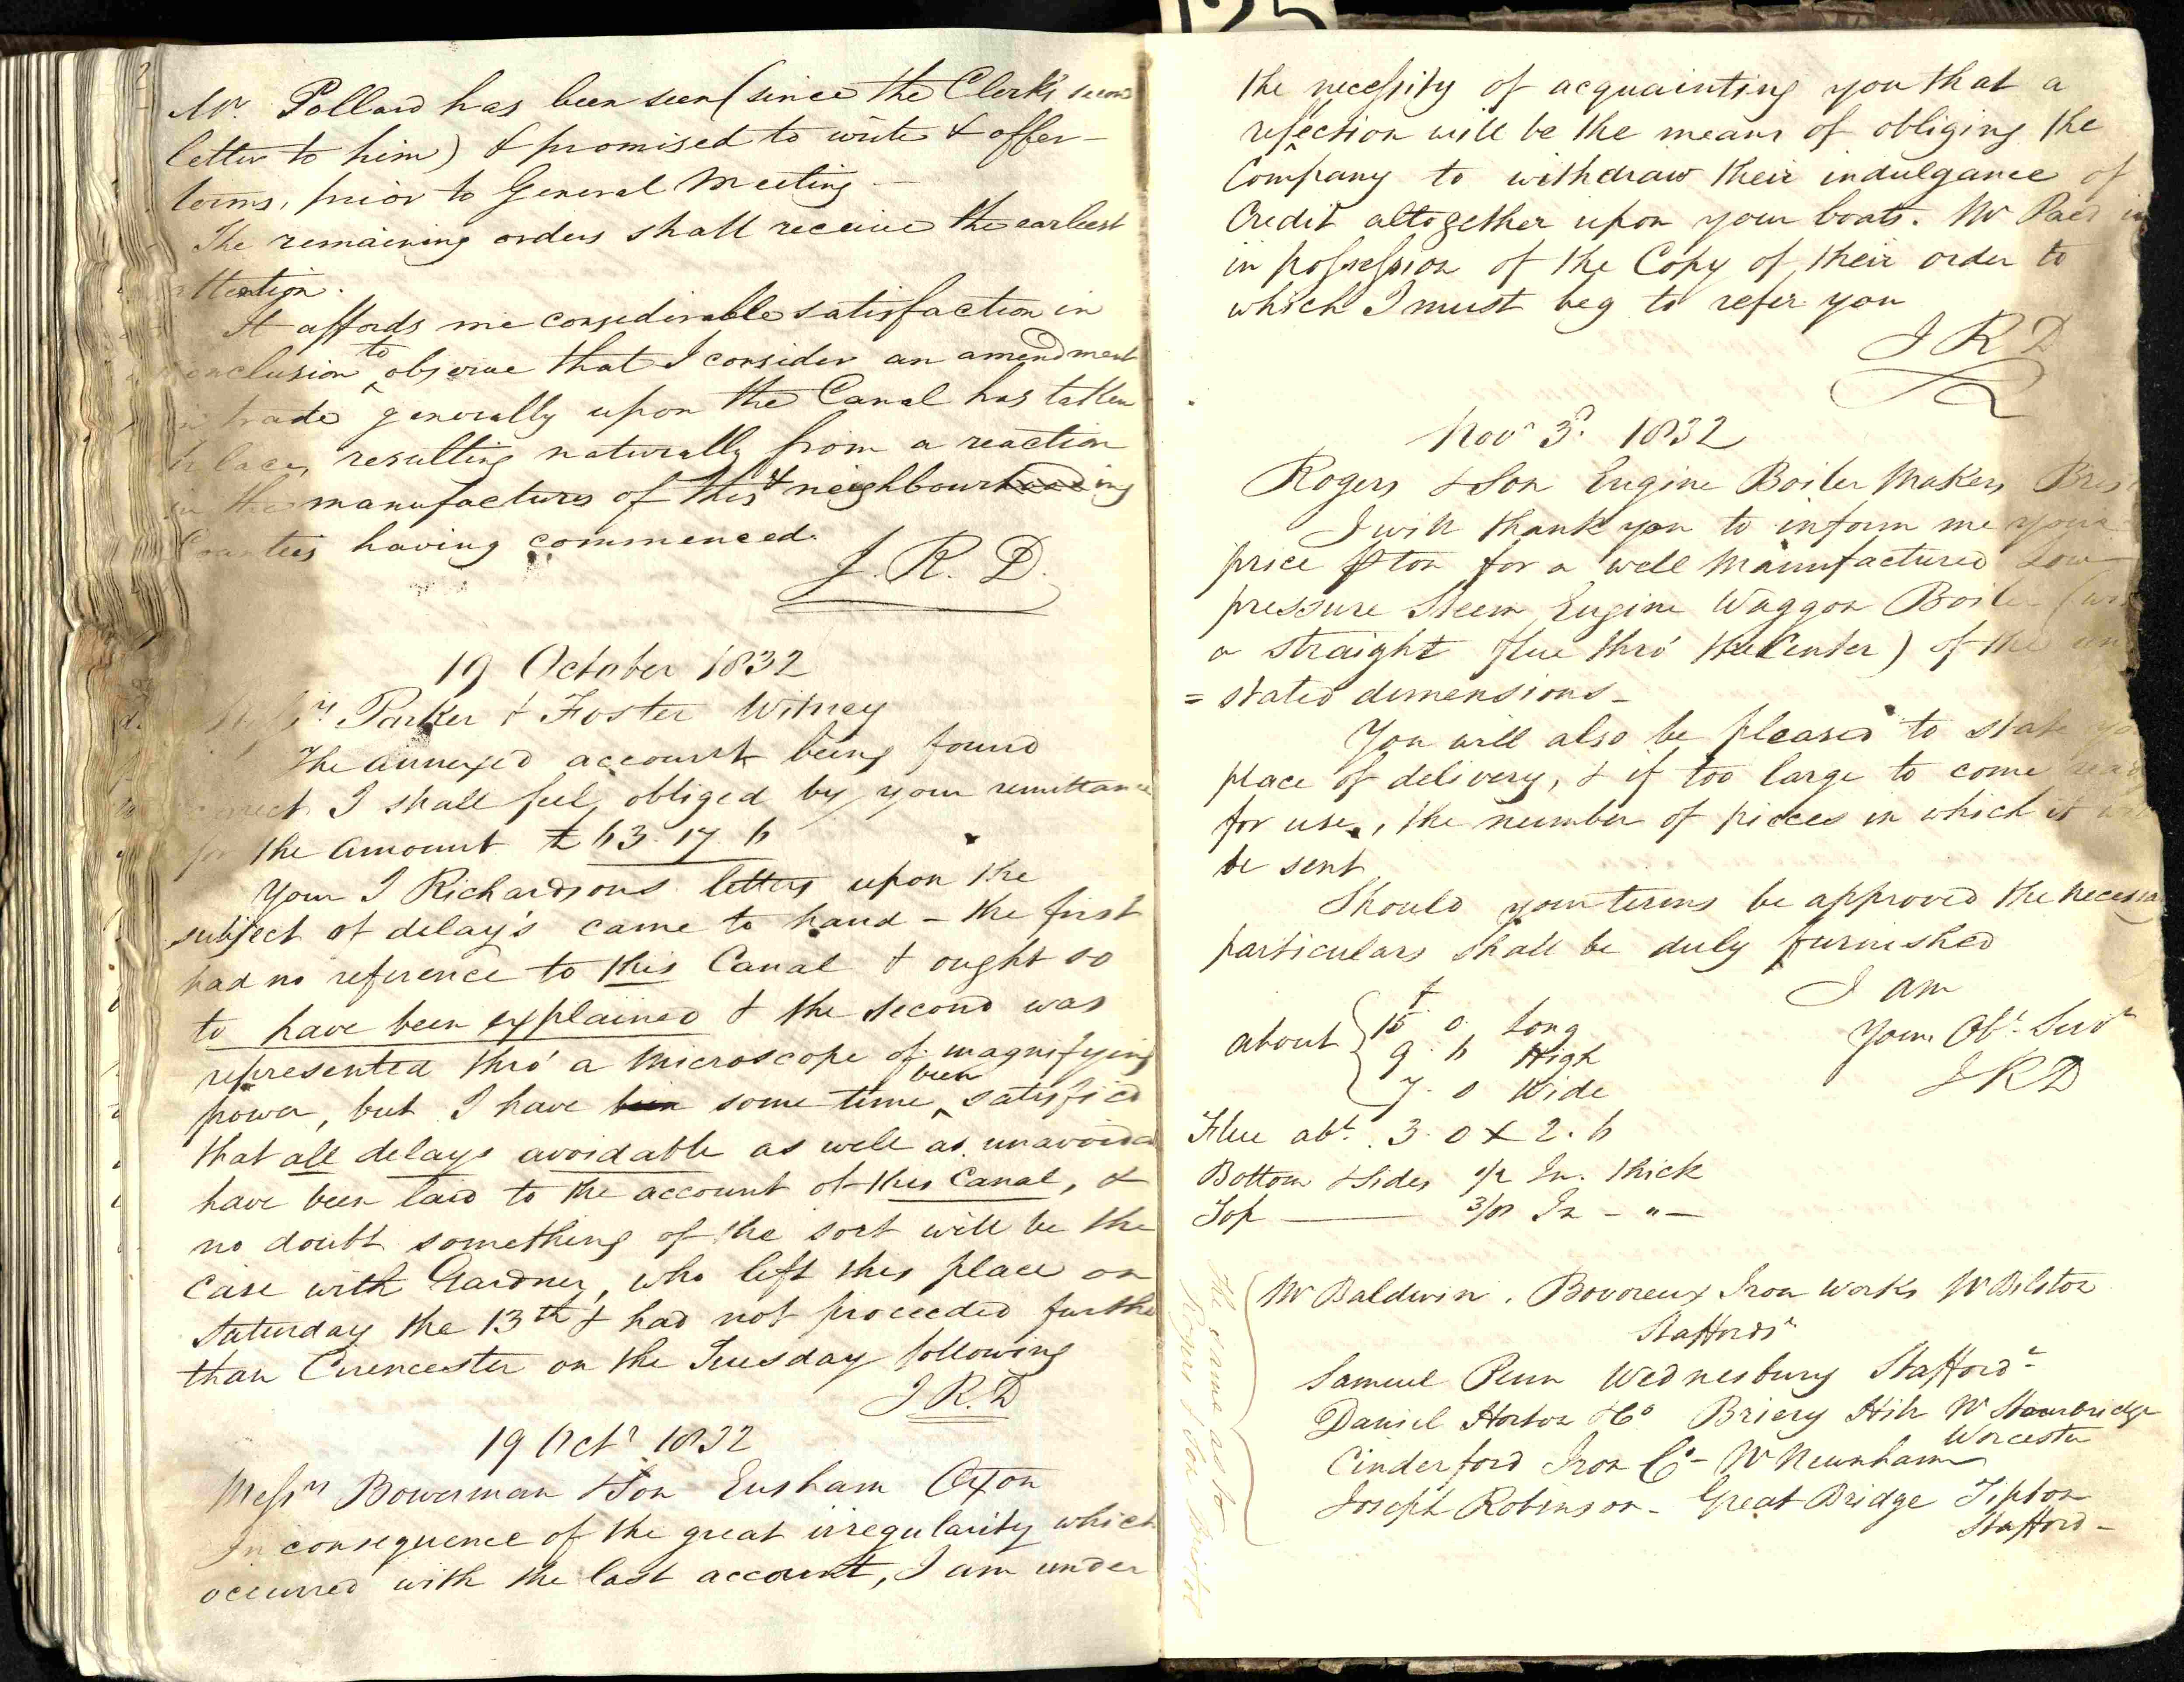 125
Mr. Pollard has been seen (since the Clerk's second
letter to him) & promised to write & offer
terms, prior to General Meeting —
The remaining orders shall receive the earliest
attention.
It affords me considerable satisfaction in
conclusion to observe that I consider an amendment
in trade generally upon the Canal has taken
place, resulting naturally from a reaction
in the manufactures of this & neighbourhooding
Counties having commenced.
J. R. D.
19 October 1832
Messrs Parker & Foster Witney
The annexed account being found
correct I shall feel obliged by your remittance
for the amount £63. 17. 6
Your I Richardsons letters upon the
subject of delay's came to hand - the first
had no reference to this Canal & ought so
to have been explained & the second was
represented thro' a microscope of magnifying
power, but I have been some time been satisfied
that all delays avoidable as well as unavoida
have been laid to the account of this Canal, &
no doubt something of the sort will be the
case with Gardner, who left this place on
Saturday the 13th & had not proceeded further
than Cirencester on the Tuesday following
J R. D
19 Octr 1832
Messrs Bowerman & Son Ensham Oxon
In consequence of the great irregularity which
occurred with the last account, I am under
the necessity of acquainting you that a
reflection will be the means of obliging the
Company to withdraw their indulgance of
Credit altogether upon your boats. Mr Pael in
in possession of the Copy of their order to
which I must beg to refer you
J R D
Novr 3d. 1832
Rogers & Son Engine Boiler Makers Bris
I will thank you to inform me your
price ⅌ ton for a well manufactured Low
pressure Steem Engine Waggon Boiler (with
a straight flue thro' the Center) of the un
= stated dimensions -
You will also be pleased to state yo
place of delivery, & if too large to come read
for use, the number of pieces in which it
be sent
Should your terms be approved the necessa
particulars shall be duly furnished
I am
Your Obt. Servt
J R D
about { f 15. 0. Long
9. 6 High
7. 0 Wide
Flue abt. 3. 0 X 2. 6
Bottom & Sides 1/2 In. thick
Top — 3/8 In - " -
The same as to
Rogers & Son Bristol
Mr Baldwin. Bovoreux Iron Works Nr Bilston
Staffordr
Samuel Penn Wednesbury Staffordr
Daniel Horton & Co Briery Hill Nr Stourbridge
Worcester
Cinderford Iron Co - Nr Newnham
Joseph Robinson - Great Bridge Tipton
Stafford -